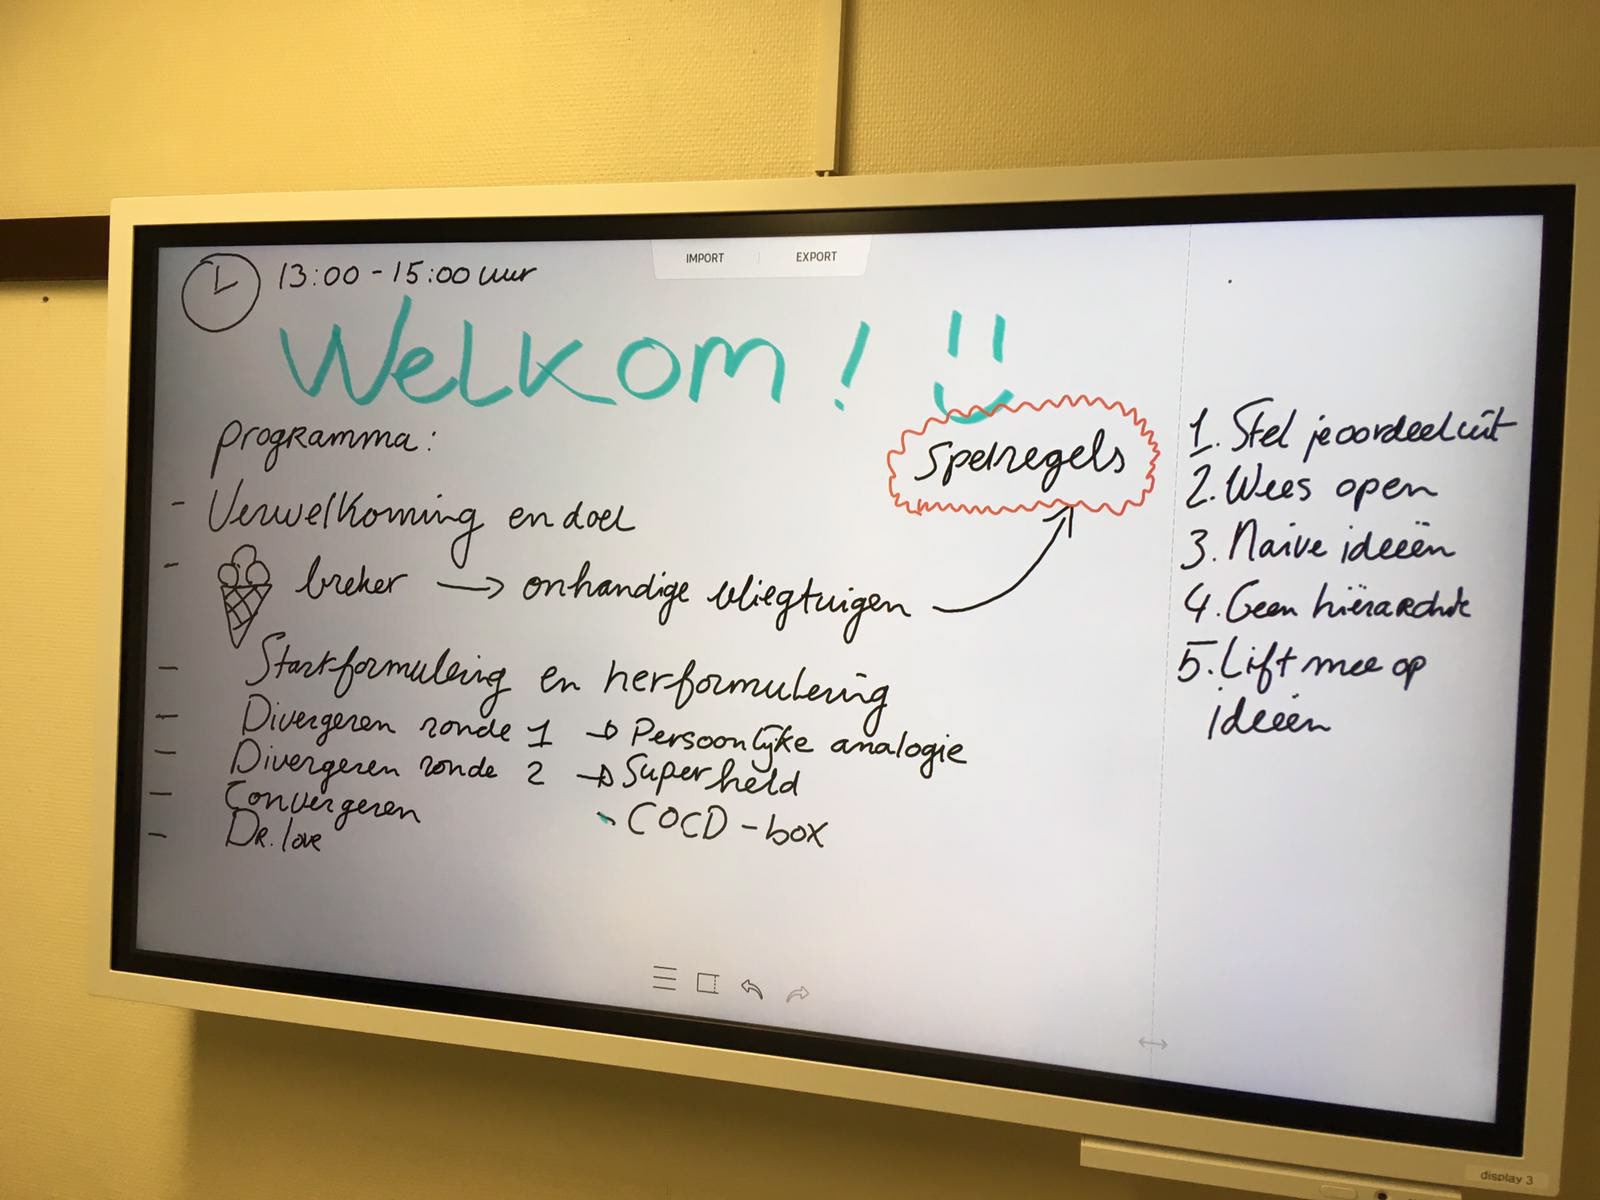 13:00 - 15:00 uur
IMPORT EXPORT
Welkom!
programma:
- Verwelkoming en doel
- breker → onhandige vliegtuigen
Spelregels
- Startformulering en herformulering
- Divergeren ronde 1 → Persoonlijke analogie
- Divergeren ronde 2 → Superheld
- Convergeren COCD-box
- Dr. love
1. Stel je oordeel uit
2. Wees open
3. Naive ideeën
4. Geen hiërarchie
5. Lift mee op
ideeën
display 3